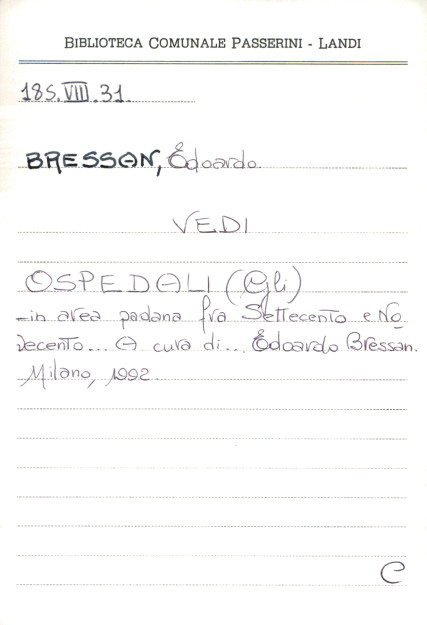 BIBLIOTECA COMUNALE PASSERINI - LANDI
185.VIII.31.
BRESSAN, Edoardo.
VEDI
OSPEDALI (Gli)
-in area padana fra Settecento e No
vecento... A cura di... Edoardo Bressan.
Milano, 1992.
C